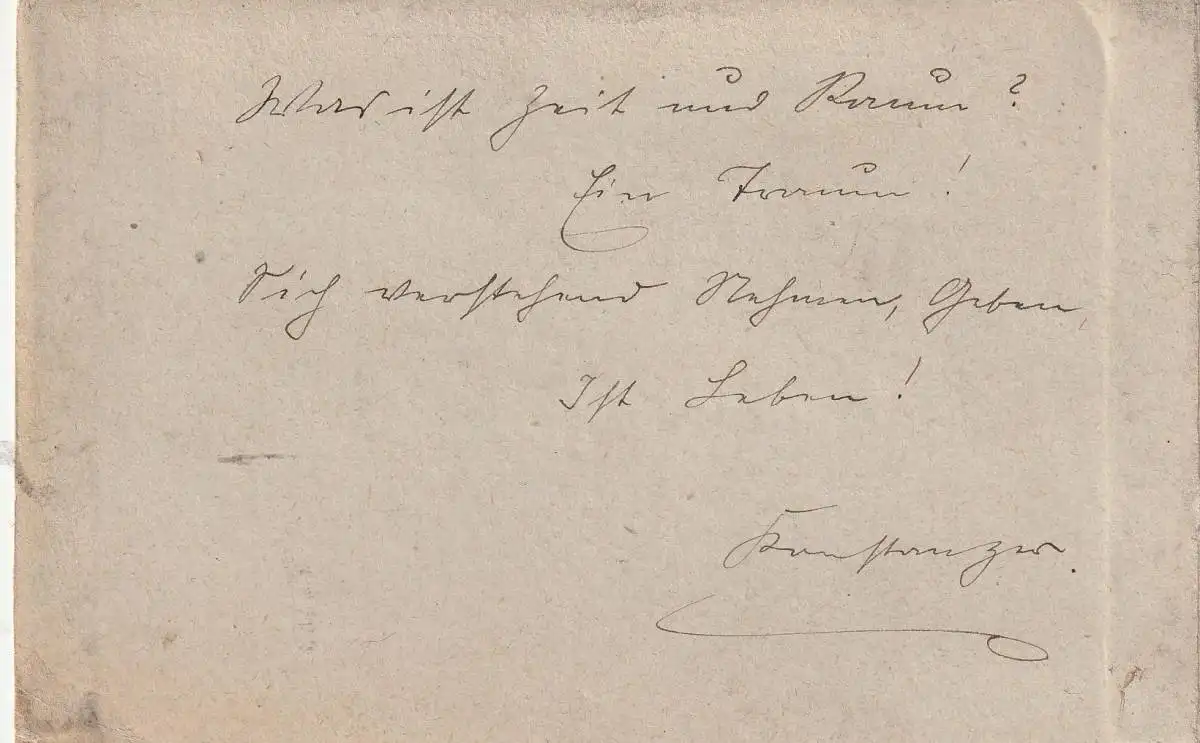 Was ist Zeit und Raum?
Ein Traum!
Sich verstehend Nehmen, Geben,
Ist Leben!
Konstanzer.